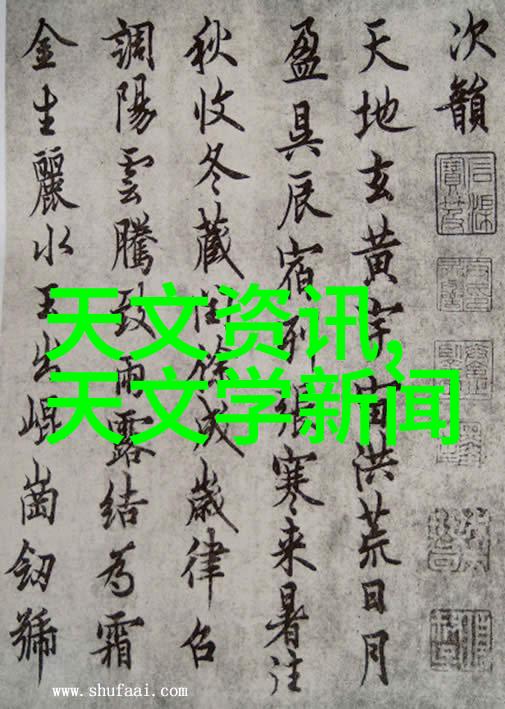 次韻
天地玄黃宇宙洪荒日月
盈昃辰宿列張寒来暑往
秋收冬蔵閏餘成歲律召
調陽雲騰致雨露結為霜
金生麗水玉出崐崗劒號
天文资讯,
天文学新闻
www.shufaai.com